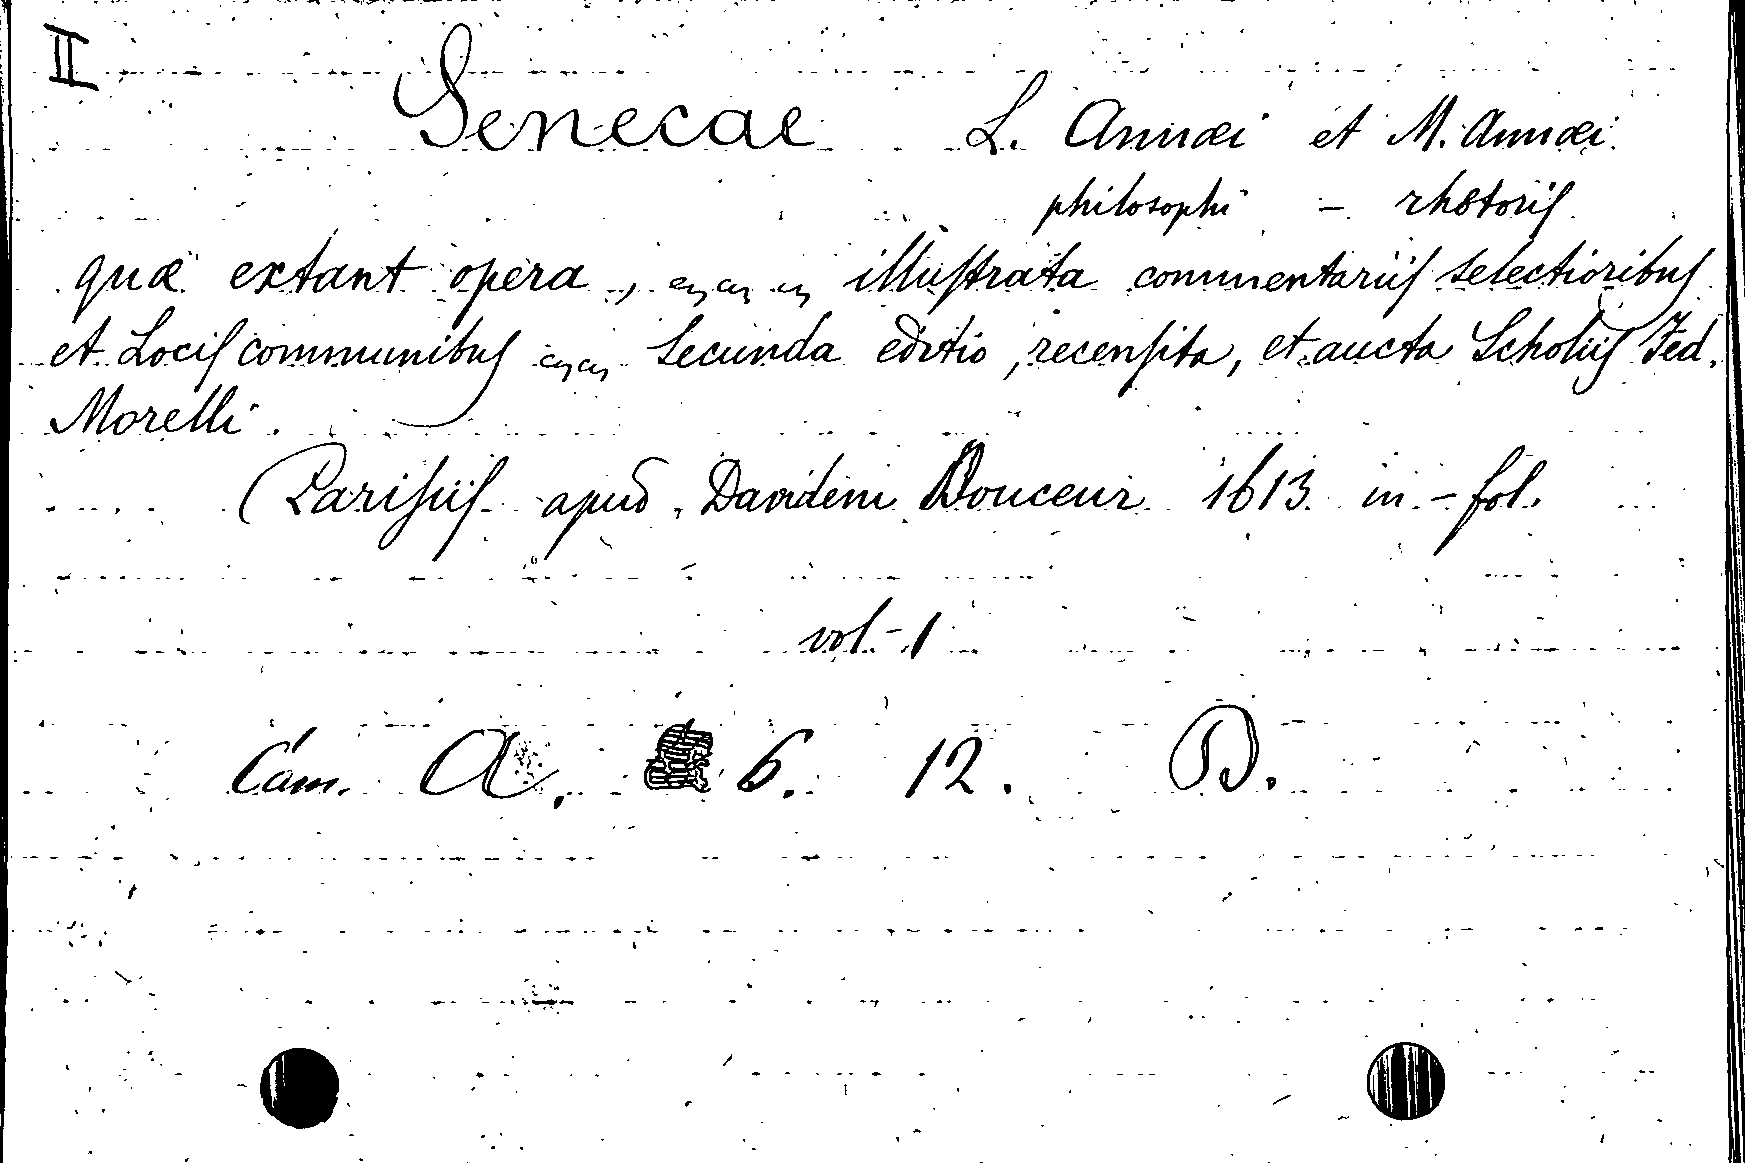 II
Senecae L. Annæi et M. Annæi
philosophi – rhetoris
quæ extant opera, illustrata commentariis selectioribus
et Locis communibus Secunda editio, recensita, et aucta Scholiis Fed.
Morelli.
Parisiis apud Davidem Douceur 1613. in-fol.
vol-1
Cam. A. 6. 12. D.